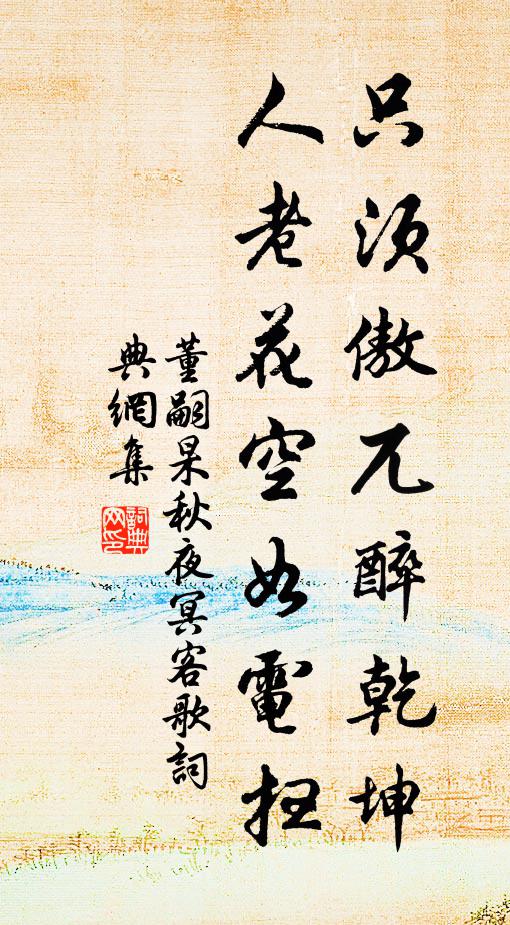 只須傲兀醉乾坤
人老花空如電扫
董嗣杲秋夜冥客歌詞
典網集
詞典
网印